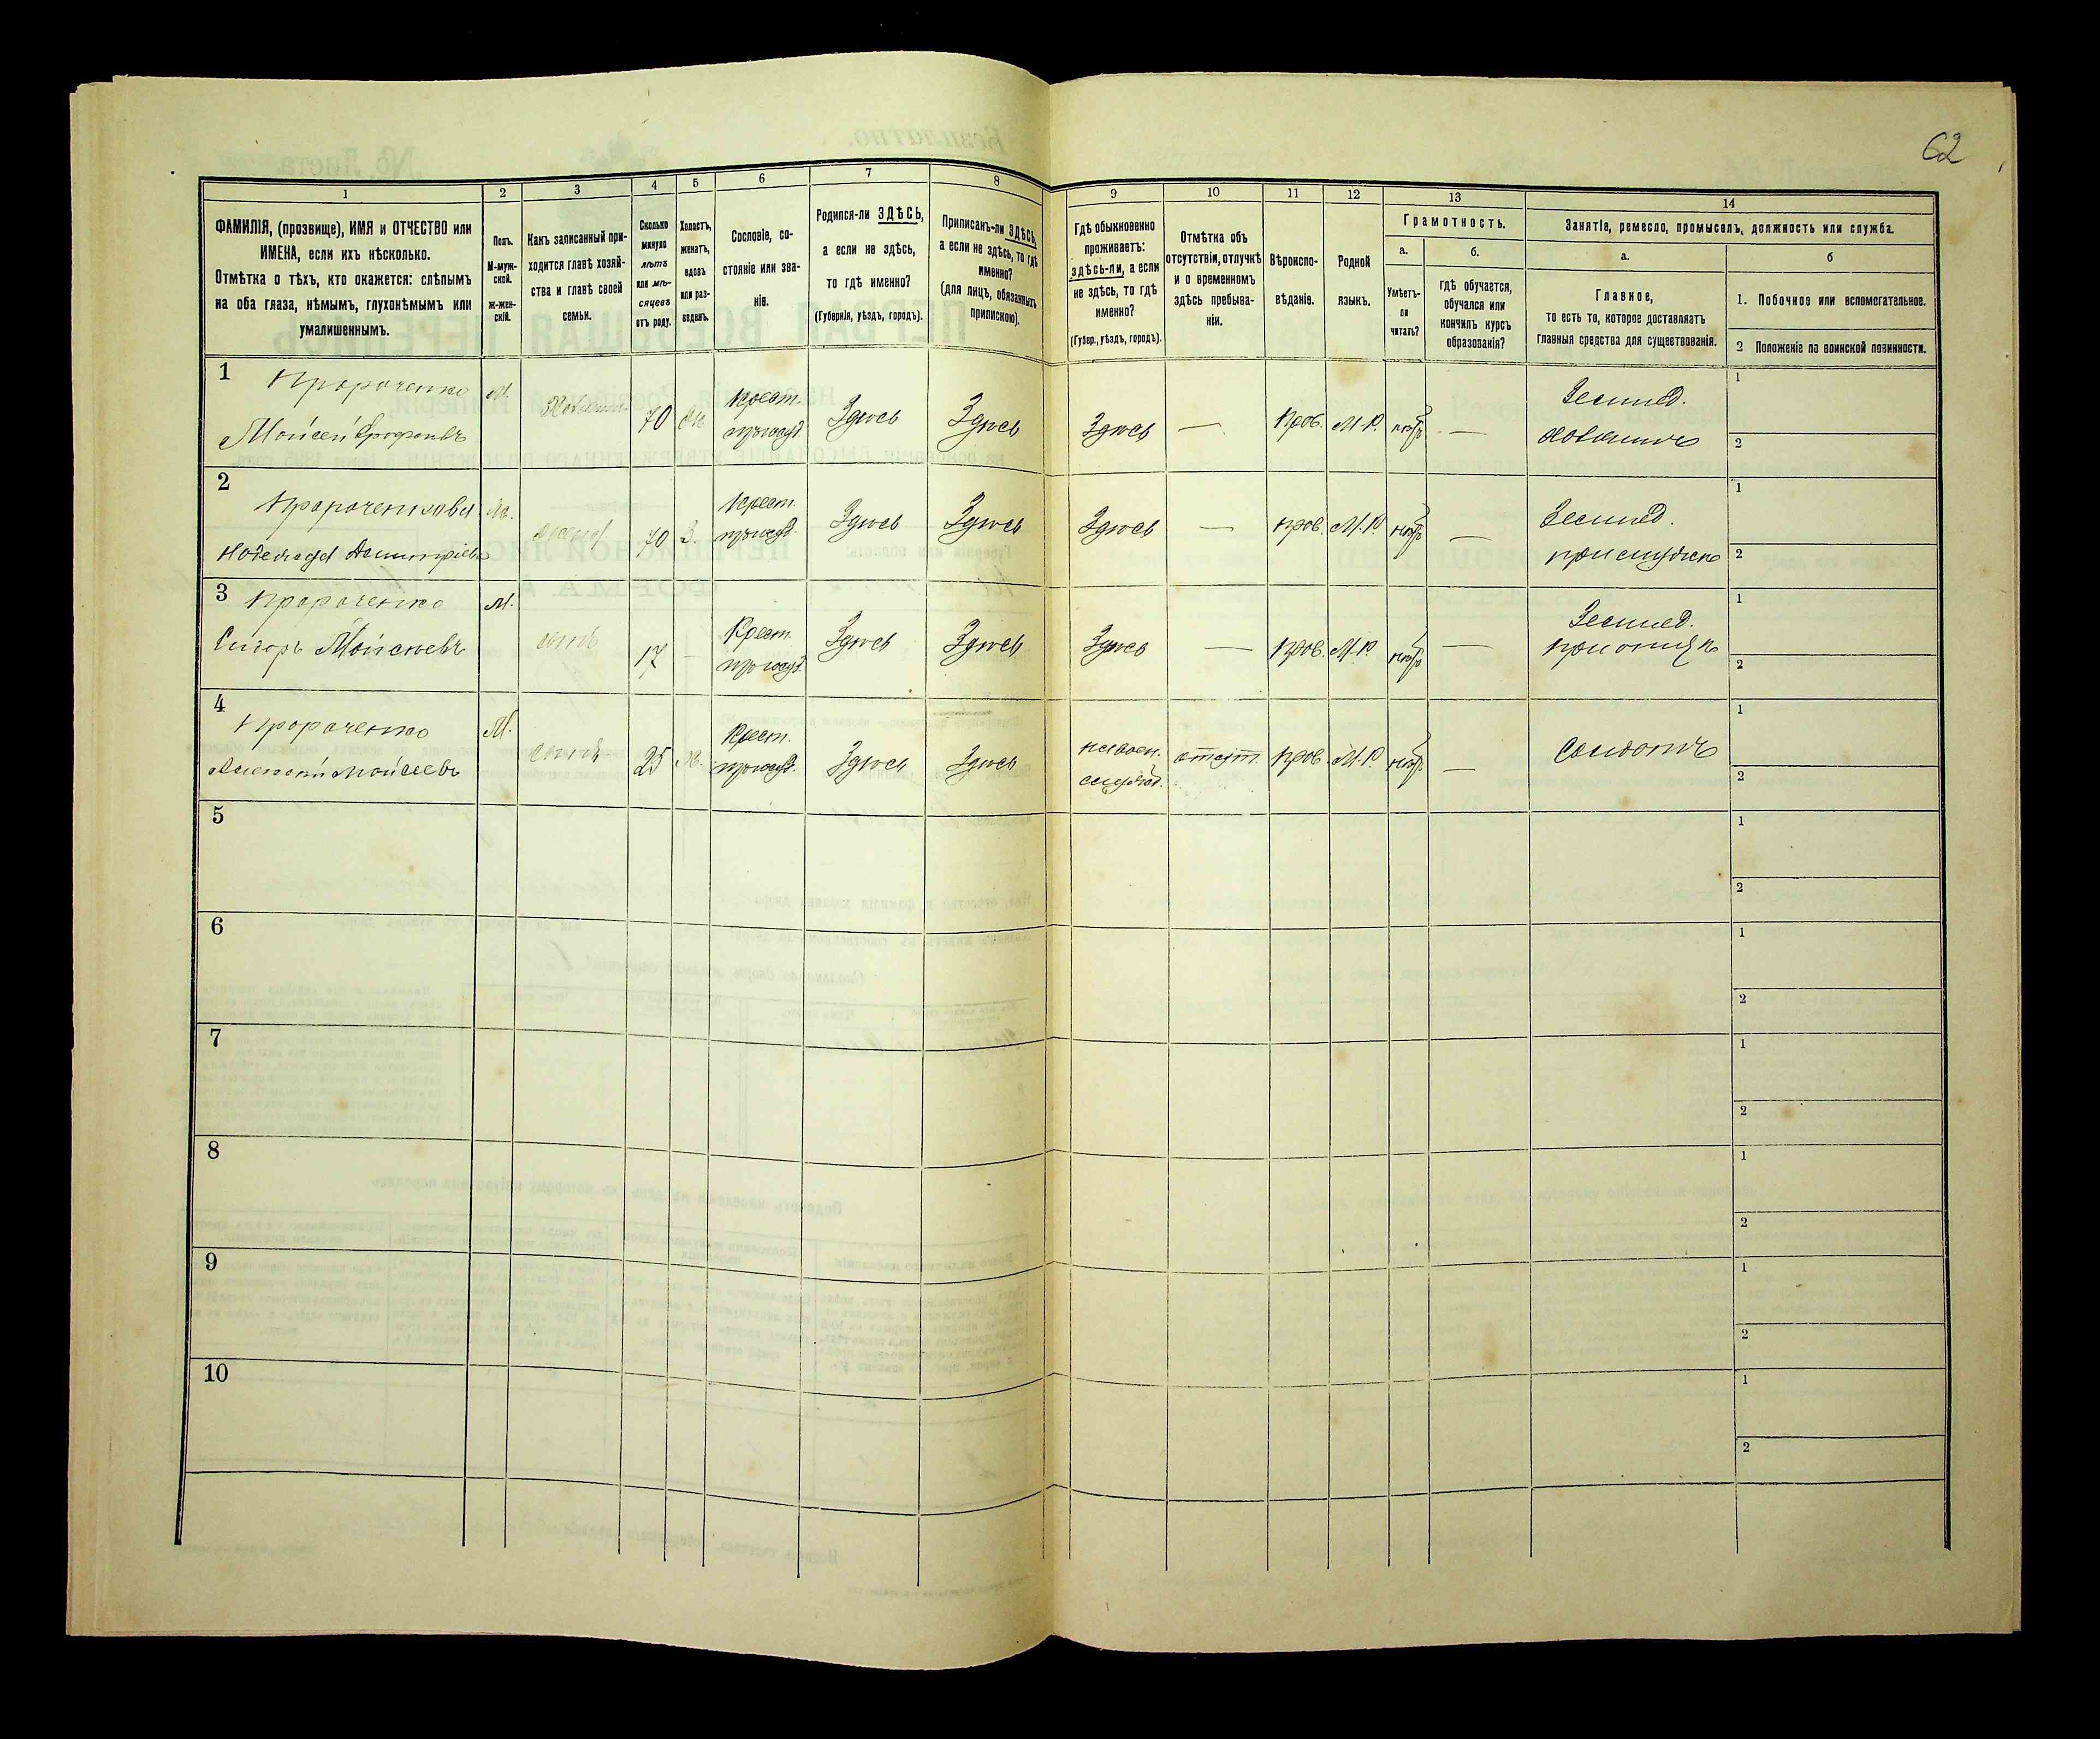 62
1
2
3
4
5
6
7
8
9
10
11
12
13
14
ФАМИЛІЯ, (прозвище), ИМЯ и ОТЧЕСТВО или
ИМЕНА, если ихъ нѣсколько.
Отмѣтка о тѣхъ, кто окажется: слѣпымъ
на оба глаза, нѣмымъ, глухонѣмымъ или
умалишеннымъ.
Полъ.
М-муж-
ской.
ж-жен-
скій.
Какъ записанный при-
ходится главѣ хозяй-
ства и главѣ своей
семьи.
Сколько
минуло
лѣтъ
или мѣ-
сяцевъ
отъ роду.
Холостъ,
женатъ,
вдовъ
или раз-
веденъ.
Сословіе, со-
стояніе или зва-
ніе.
Родился-ли ЗДѢСЬ,
а если не здѣсь,
то гдѣ именно?
(Губернія, уѣздъ, городъ).
Приписанъ-ли ЗДѢСЬ,
а если не здѣсь, то гдѣ
именно?
(для лицъ, обязанныхъ
припискою).
Гдѣ обыкновенно
проживаетъ:
здѣсь-ли, а если
не здѣсь, то гдѣ
именно?
(Губер., уѣздъ, городъ).
Отмѣтка объ
отсутствіи, отлучкѣ
и о временномъ
здѣсь пребыва-
ніи.
Вѣроиспо-
вѣданіе.
Родной
языкъ.
Грамотность.
а.
Умѣетъ-
ли
читать?
б.
гдѣ обучается,
обучался или
кончилъ курсъ
образованія?
Занятіе, ремесло, промыселъ, должность или служба.
а.
Главное,
то есть то, которое доставляетъ
главныя средства для существованія.
б
1. Побочное или вспомогательное.
2 Положеніе по воинской повинности.
1
Пророченко
Мойсей
м.
Хозяинъ
70
Крест.
Здѣсь
Здѣсь
Здѣсь
—
Прав.
М-Р.
нѣтъ
—
Землед.
хозяинъ
1
2
2
Пророченкова
Надежда Дмитріева
жена
70
З.
Крест.
Здѣсь
Здѣсь
Здѣсь
—
прав.
М.Р.
нѣтъ
—
Землед.
1
2
3
Пророченко
Сидоръ Мойсѣевъ
М.
сынъ
17
Крест.
Здѣсь
Здѣсь
Здѣсь
—
Прав.
М.Р.
нѣтъ
—
Землед.
при отцѣ
1
2
4
Пророченко
Алексѣй Мойсеевъ
М.
сынъ
25
Крест.
Здѣсь
Здѣсь
на воен.
службѣ.
отсут.
Прав.
М.Р.
нѣтъ
—
Солдатъ
1
2
5
1
2
6
1
2
7
1
2
8
1
2
9
1
2
10
1
2